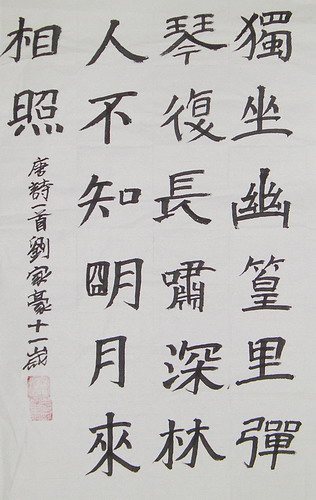 獨坐幽篁里彈
琴復長嘯深林
人不知明月來
相照
唐詩一首劉家豪十一歲